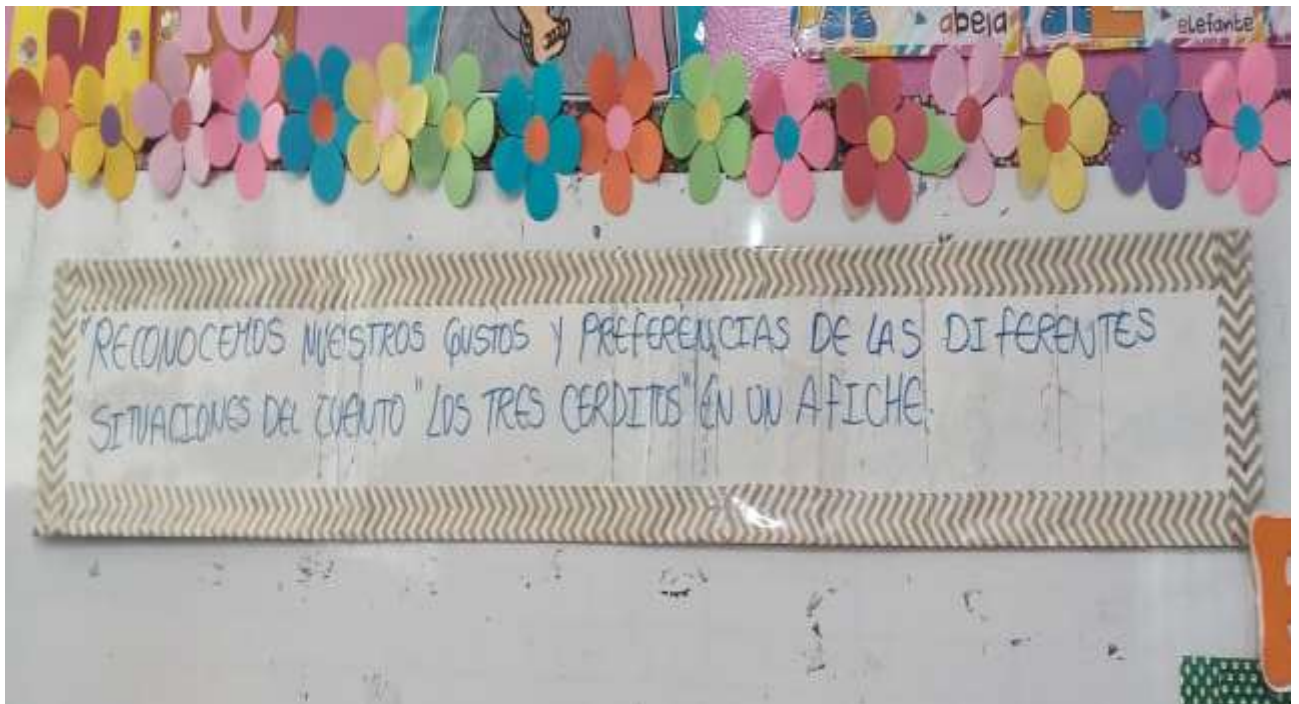 abeja
elefante
"RECONOCEMOS NUESTROS GUSTOS Y PREFERENCIAS DE LAS DIFERENTES
SITUACIONES DEL CUENTO "LOS TRES CERDITOS" EN UN AFICHE.